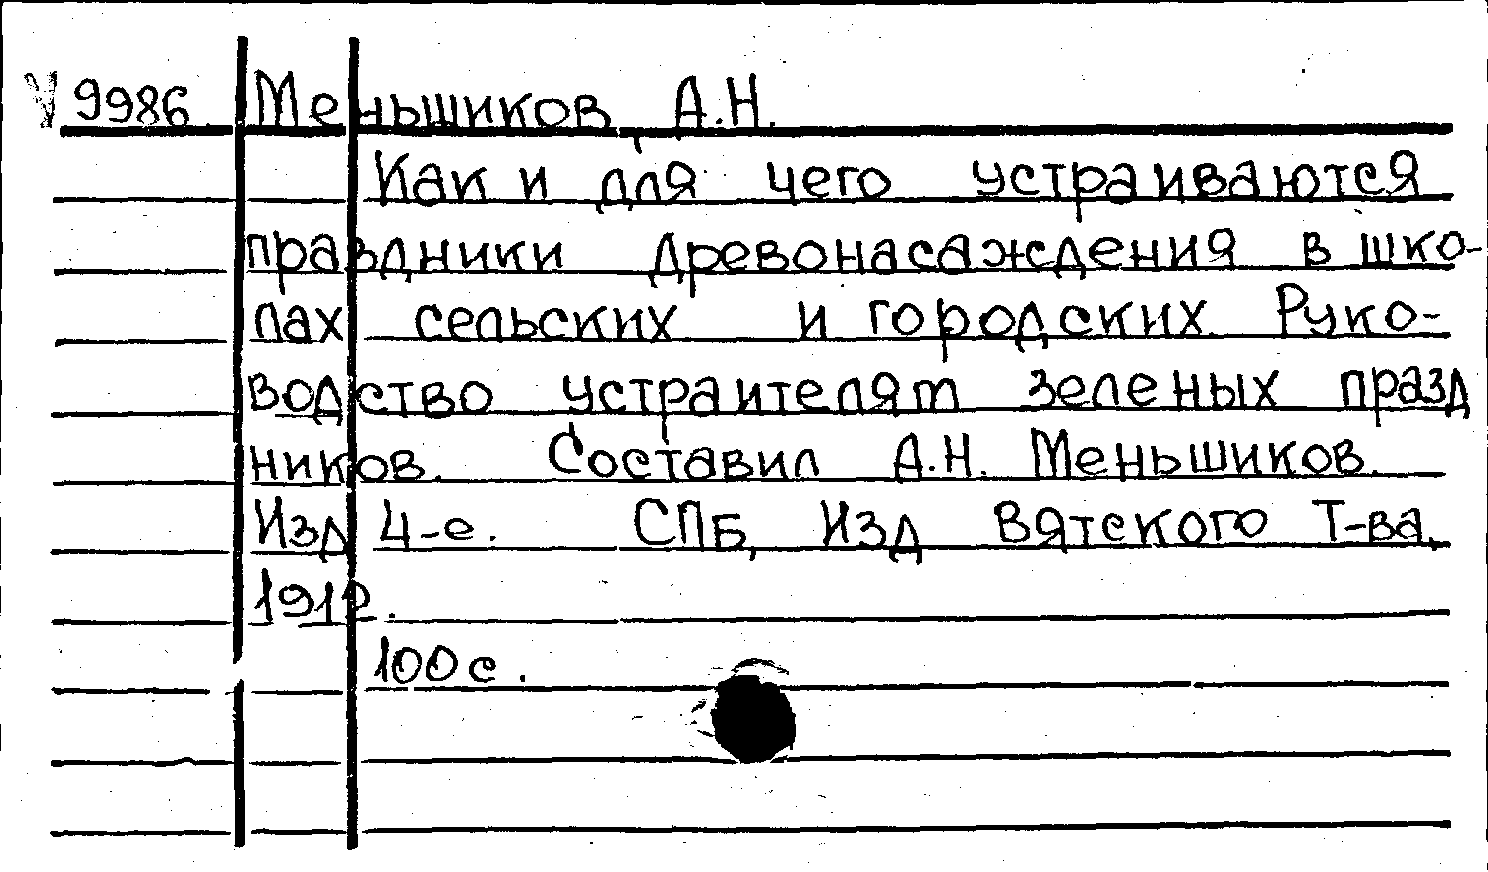 V 9986 Меньшиков, А.Н.
Как и для чего устраиваются
праздники древонасаждения в шко-
лах сельских и городских. Руко-
водство устраителям зеленых празд
ников. Составил А.Н. Меньшиков.
Изд 4-е. СПБ, Изд Вятского Т-ва,
1912.
100 с.